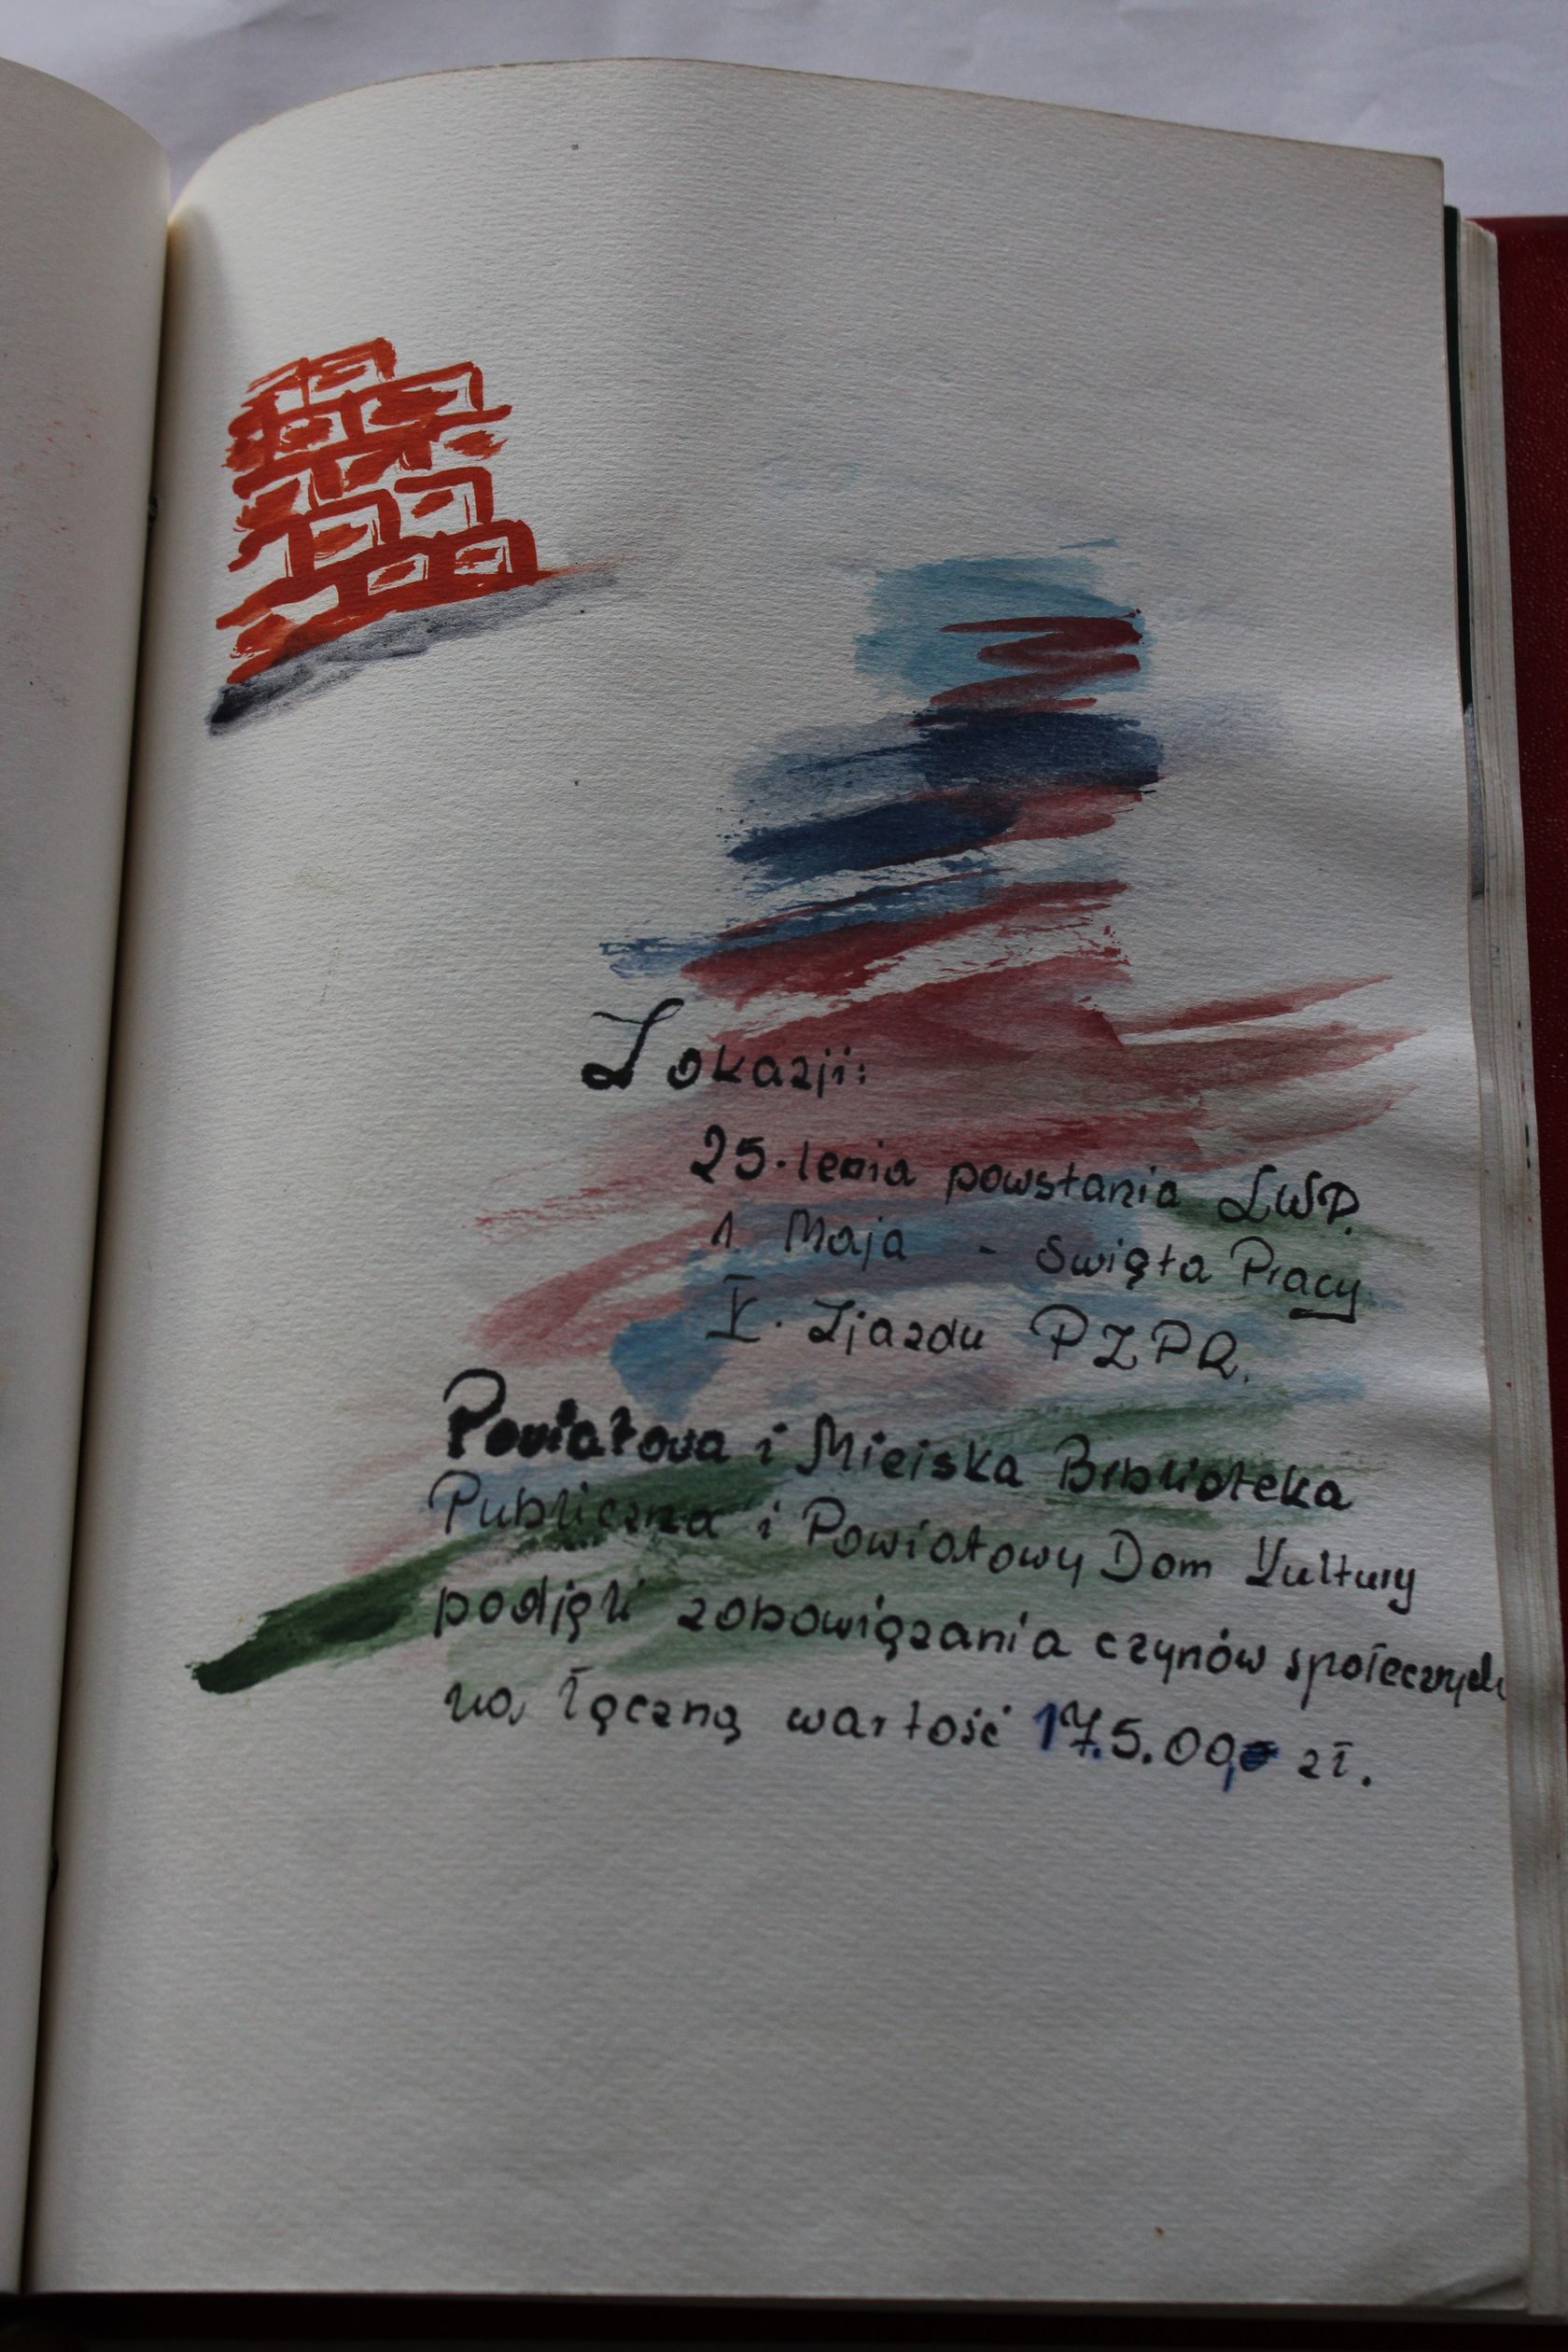 Z okazji:
25-lecia powstania LWP.
1 Maja - Swięta Pracy
V. Zjazdu PZPR.
Powiatowa i Miejska Biblioteka
Publiczna i Powiatowy Dom Kultury
podjęli zobowiązania czynów społecznych
na łączną wartość zł.